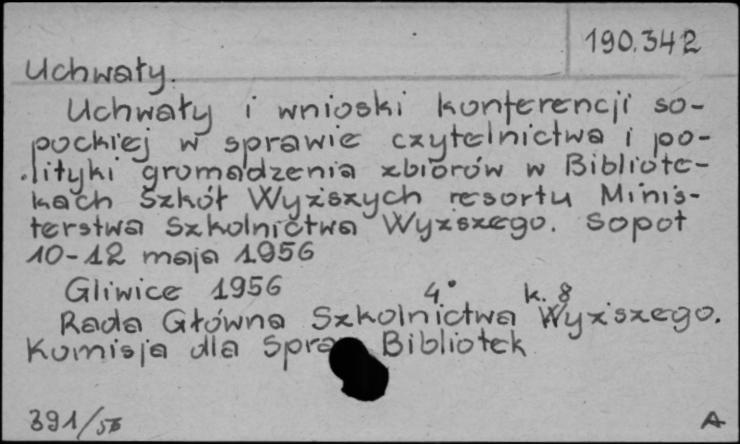 190.342
Uchwały.
Uchwały i wnioski konferencji so-
pockiej w sprawie czytelnictwa i po-
lityki gromadzenia zbiorów w Bibliote-
kach Szkół Wyższych resortu Minis-
terstwa Szkolnictwa Wyższego. Sopot
10-12 maja 1956
Gliwice 1956 4° k. 8
Rada Główna Szkolnictwa Wyższego.
Komisja dla Spra Bibliotek
391/56
A